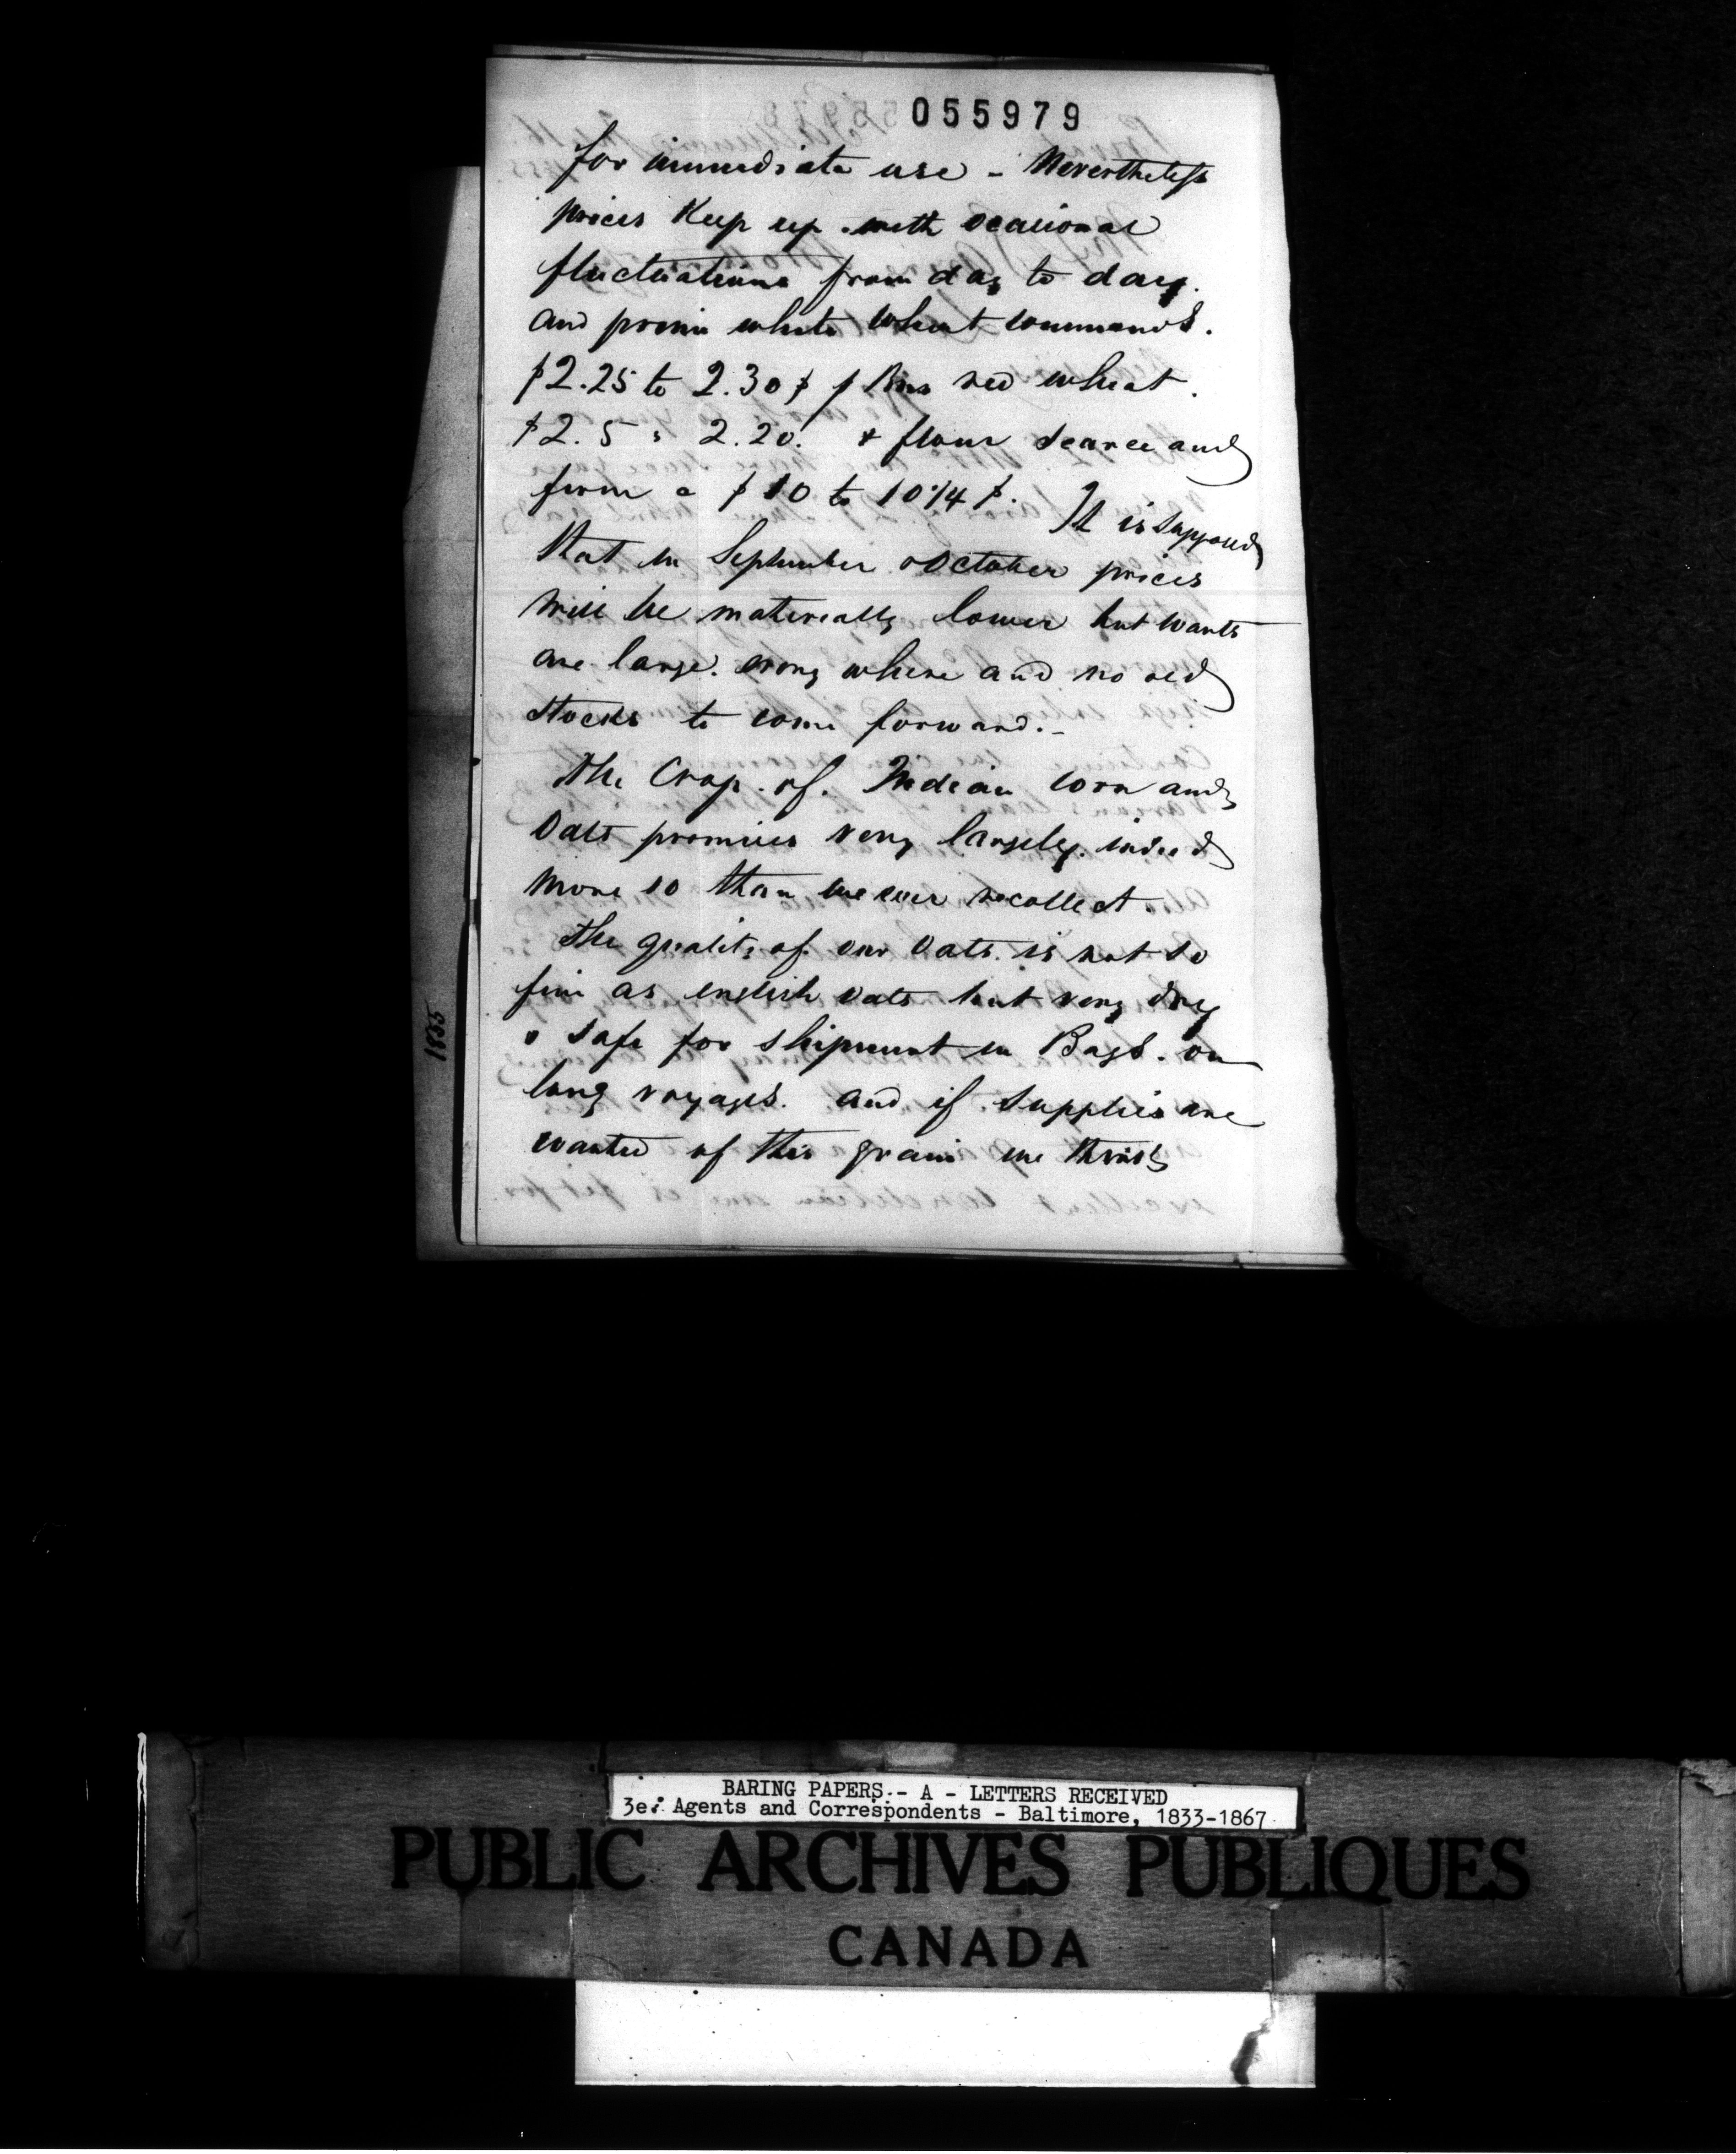 055979
for immediate use - Nevertheless
prices Keep up with ocasional
fluctuations from day to day.
and prime white Wheat commands.
$2.25 to 2.30 $ p Bus red wheat.
$2.5 " 2.20. & flour scarce and
firm a $10 to 10 1/4 $. It is supposed
that in September & October prices
will be materially lower but wants
are large. every where and no old
stocks to come forward.-
The Crop. of. Indian corn and
Oats promises very largely. indeed
more so than we ever recollect.
The quality of our Oats. is not so
fine as english oats but very dry
& safe for shipment in Bags. on
long voyages. and if supplies are
wanted of this grain we think
1855
BARING PAPERS.- A - LETTERS RECEIVED
3e. Agents and Correspondents - Baltimore, 1833-1867.
PUBLIC ARCHIVES PUBLIQUES
CANADA